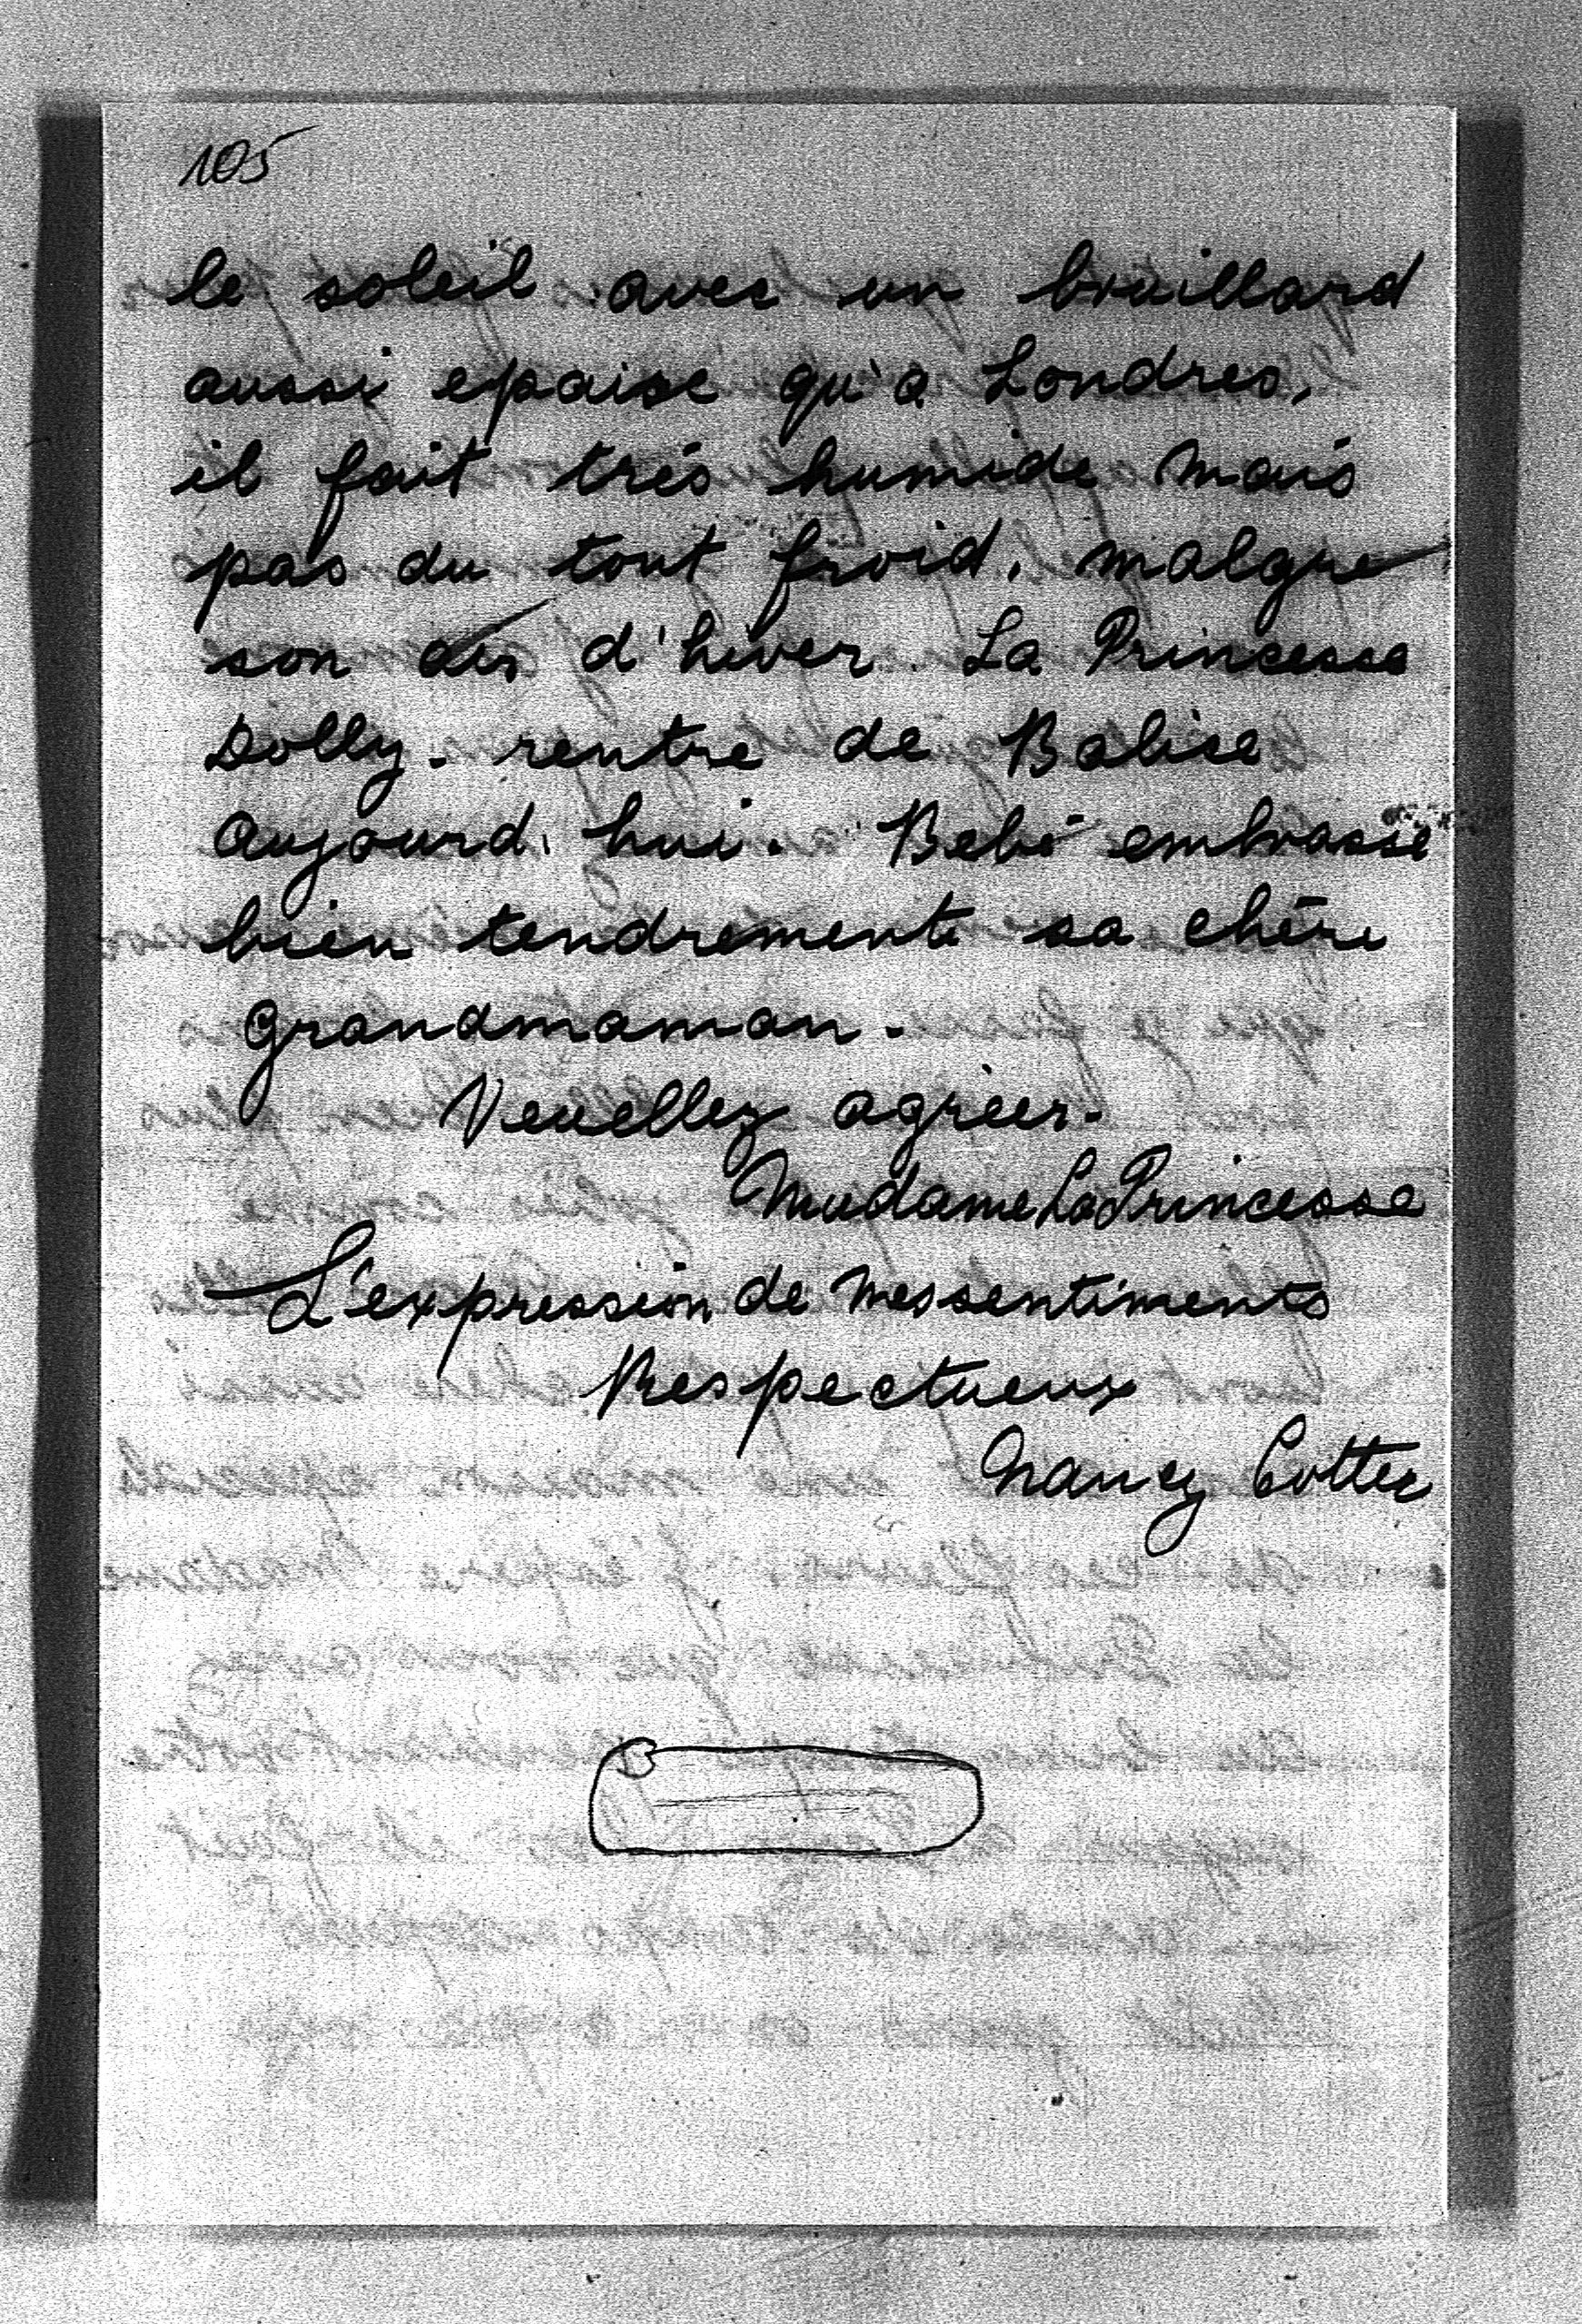 105
le soleil avec un bruillard
aussi epaise qu'a Londres,
il fait trés humide mais
pas du tout froid. malgre
son air d'hiver. La Princesse
Dolly. rentre de Balise
aujourd'hui. Bebé embrasse
bien tendremente sa chère
grandmaman.
Veuellez agréer.
Madame La Princesse
L'expression de mes sentiments
Respectueux
Nancy Cotter